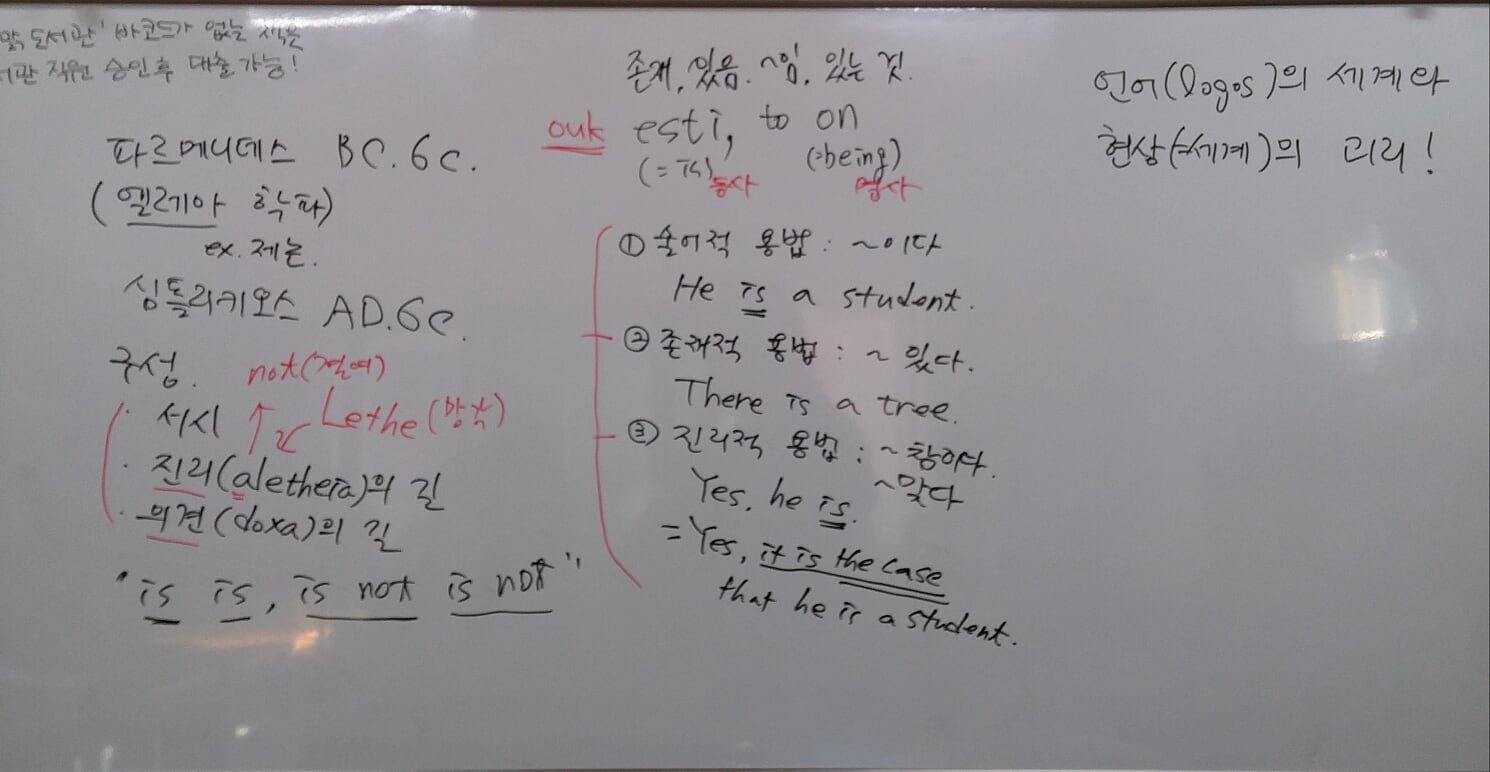 도서관' 바코드가 없는 책은
직원 승인 후 대출가능!
파르메니데스 BC.6C.
(엘레아 학파)
ex. 제논.
심플리키오스 AD.6C.
구성. not(결여)
· 서시 Lethe(망각)
· 진리(aletheia)의 길
· 의견(doxa)의 길
"is is, is not is not"
존재, 있음. ~임, 있는 것.
ouk esti, to on
(=is)동사 (=being)명사
① 술어적 용법 : ~이다
He is a student.
② 존재적 용법 : ~ 있다.
There is a tree.
③ 진리적 용법 : ~참이다.
Yes, he is. ~맞다
=Yes, it is the case
that he is a student.
언어(logos)의 세계와
현상(=세계)의 괴리!